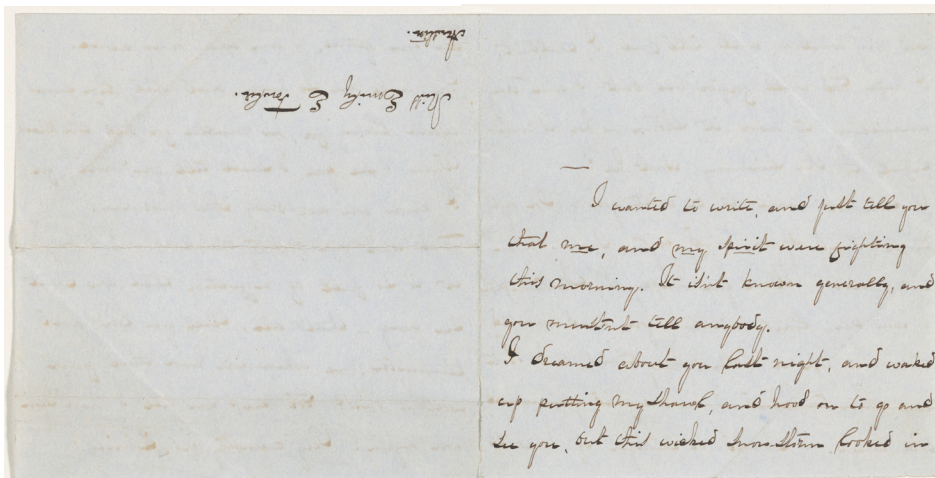 Austin.
Miss Emily E Fowler.
I wanted to write, and just tell you
that me, and my spirit were fighting
this morning. It isn't known generally, and
you must'nt tell anybody.
I dreamed about you last night, and waked
up putting my shawl, and hood on to go and
see you, but this wicked snow-storm looked in